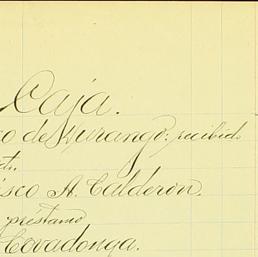 Caja.
co de Durango: recibido
cti.
isco A. Calderon.
préstamo
Covadonga.